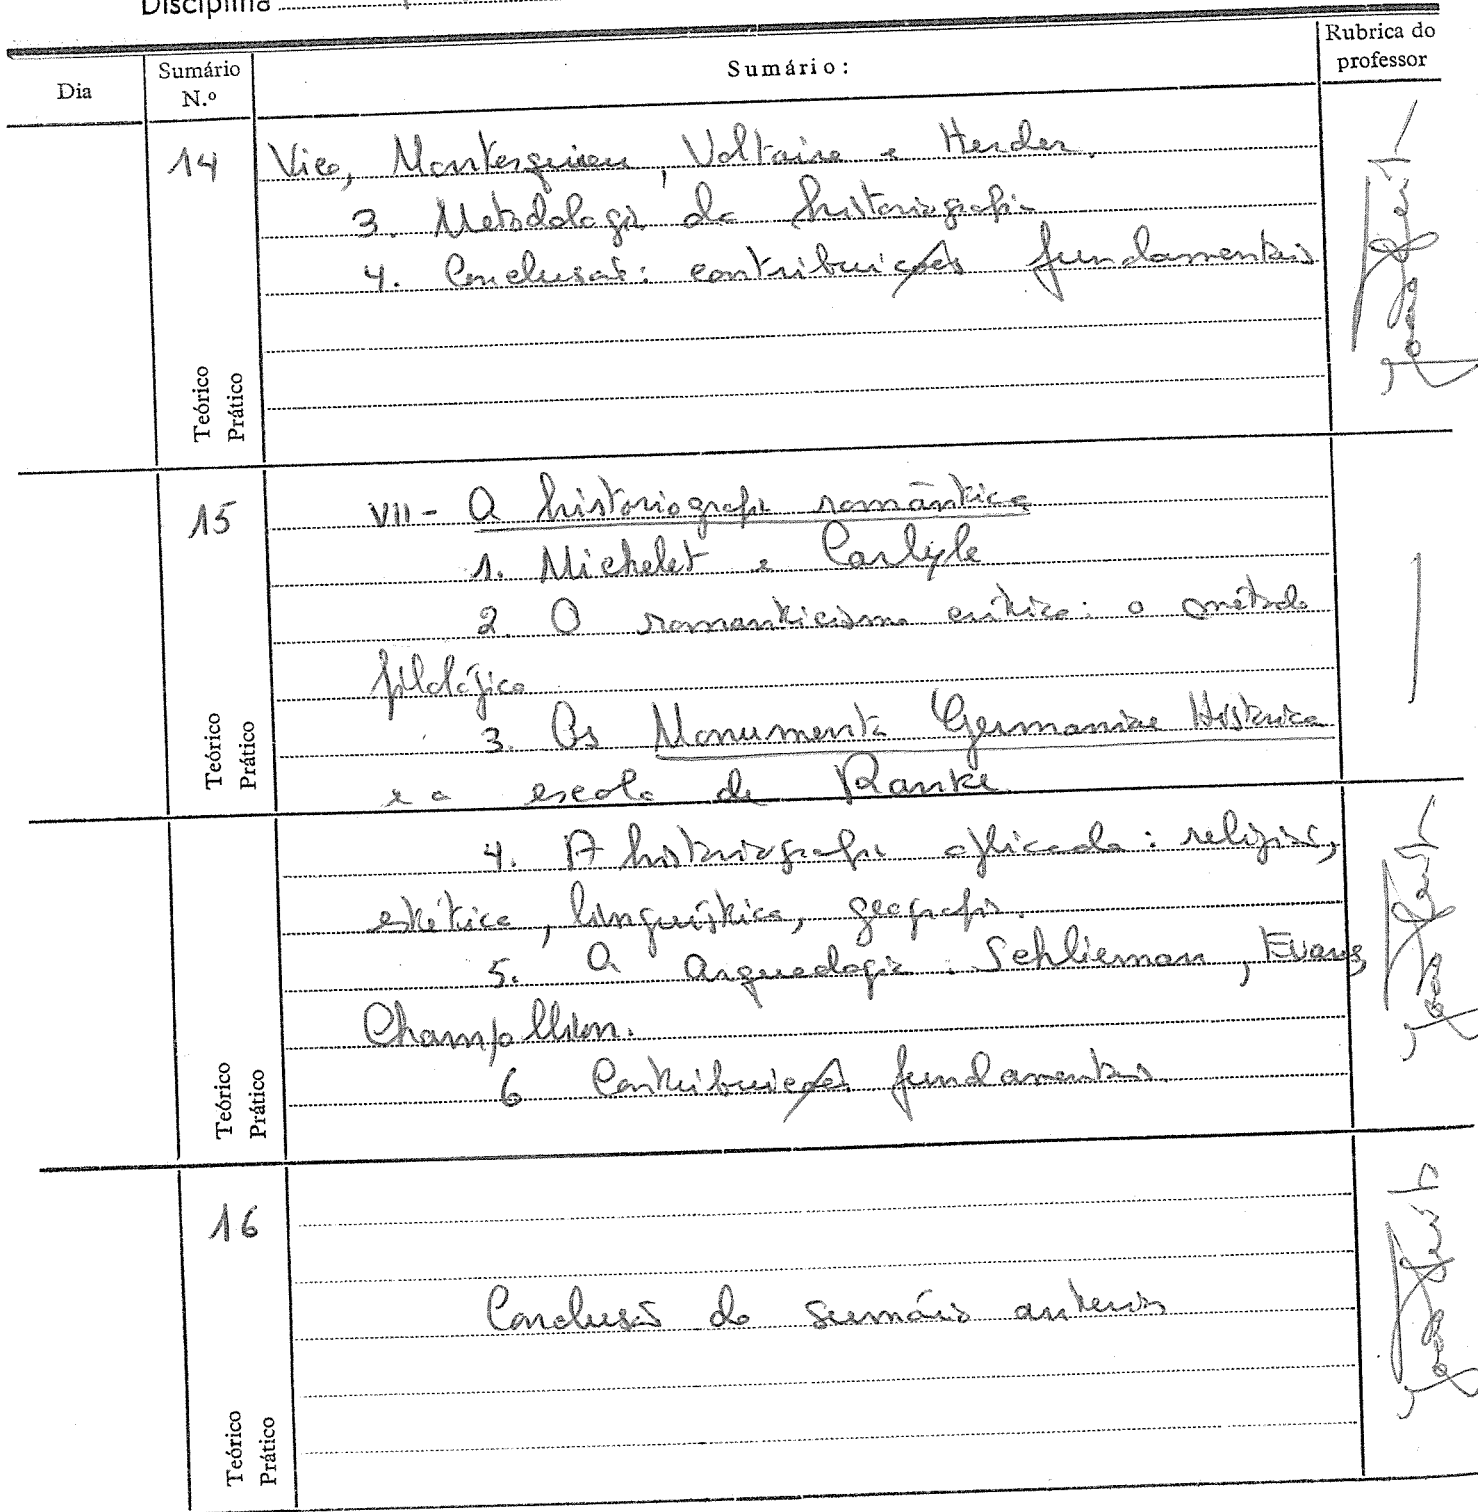 Disciplina
Dia
Sumário N.º
Sumário:
Rubrica do professor
14
Vico, Montesquieu, Voltaire e Herder.
3. Metodologia da historiografia
4. Conclusão: contribuições fundamentais
Teórico
Prático
15
VII - A historiografia romântica
1. Michelet e Carlyle
2. O romanticismo crítico: o método
filológico
3. Os Monumenta Germaniae Historica
e a escola de Ranke
Teórico
Prático
4. A historiografia aplicada: religião,
estética, linguística, geografia.
5. A Arqueologia: Schlieman, Evans,
Champollion.
6 Contribuições fundamentais.
Teórico
Prático
16
Conclusão do sumário anterior
Teórico
Prático